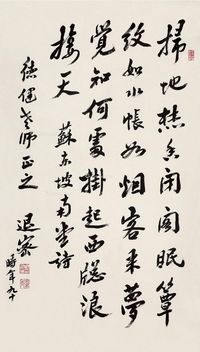 掃地焚香閉閣眠簟
紋如水帳如烟客来夢
覺知何處掛起西牕浪
接天 蘇東坡南堂詩
健老师正之
退密
時年九十